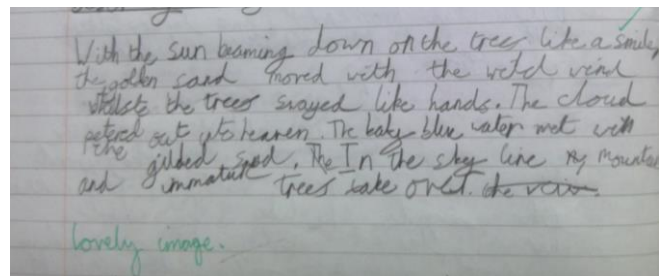 With the sun beaming down on the trees like a smile,
the golden sand moved with the wild wind
whilste the trees swayed like hands. The cloud
petered out into heaven. The baby blue water met with
the gilded sand. The In the sky line my mountas
and immature trees take over. the view.
Lovely image.